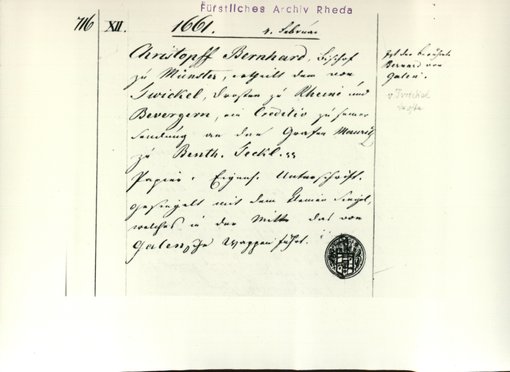 Fürstliches Archiv Rheda
716 XII. 1661. 4. Februar
Christopff Bernhard, Bischof
zu Münster, ertheilt dem von
Twickel, Drosten zu Rheine und
Bevergern, ein Creditiv zu seiner
Sendung an den Grafen Mauritz
zu Benth. Teckl.
Papier. Eigenh. Unterschrift.
gesiegelt mit dem kleinen Siegel,
welches in der Mitte das von
Galensche Wappen führt.
Ist der berühmte
Bernard von
Galen.
v. Twickel